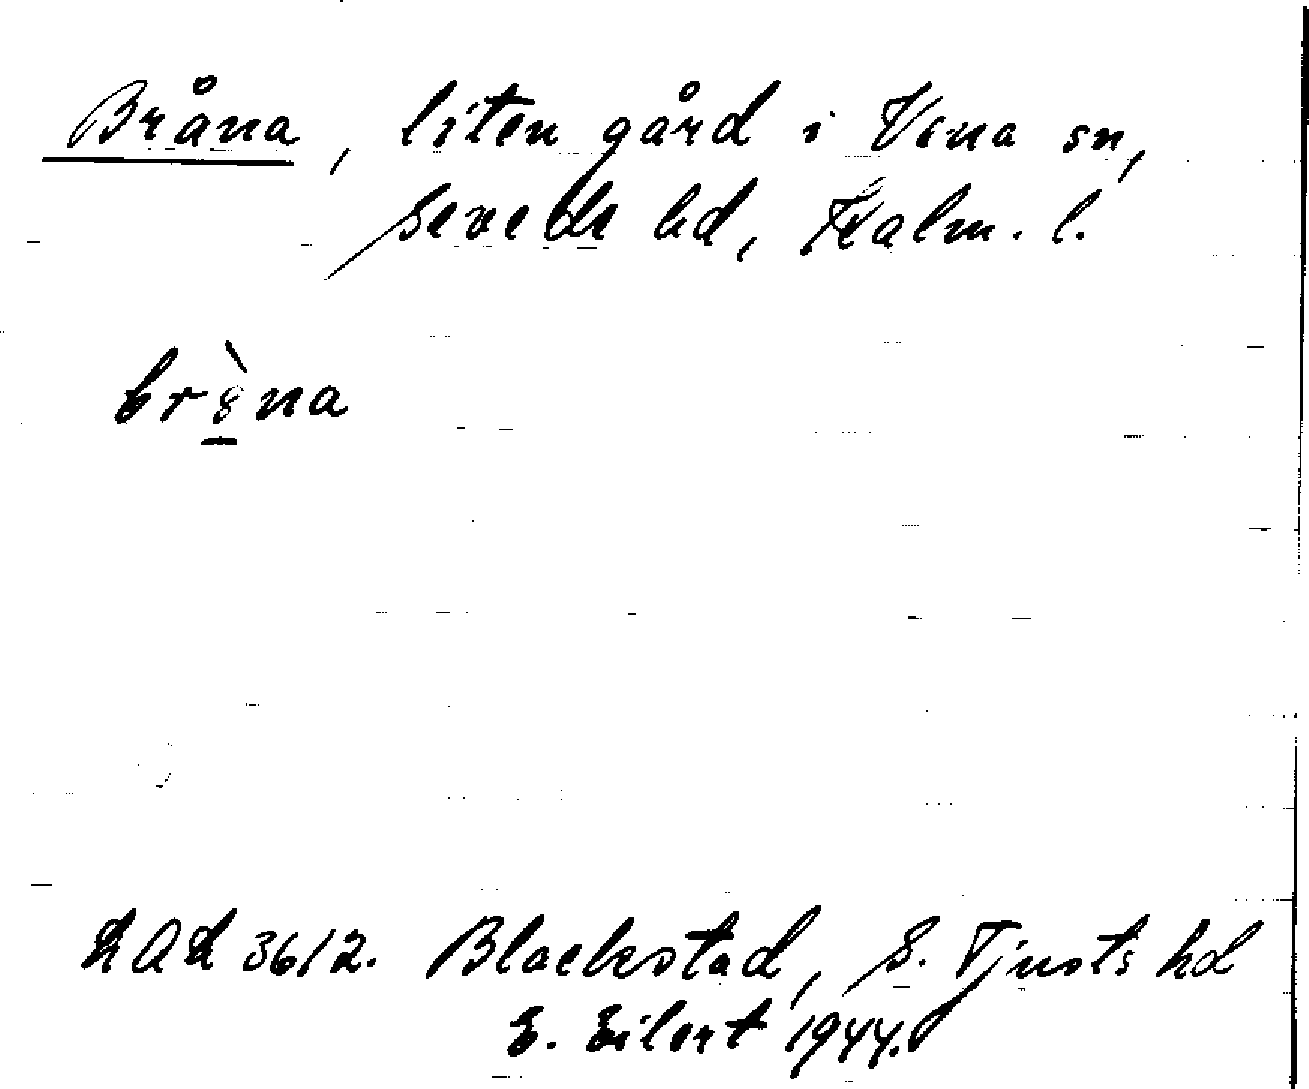 Bråna, liten gård i Vena sn,
Sevede hd, Kalm. l.
brna
LAL 3612. Blackstad, S. Tjusts hd
E. Eilert 1944.